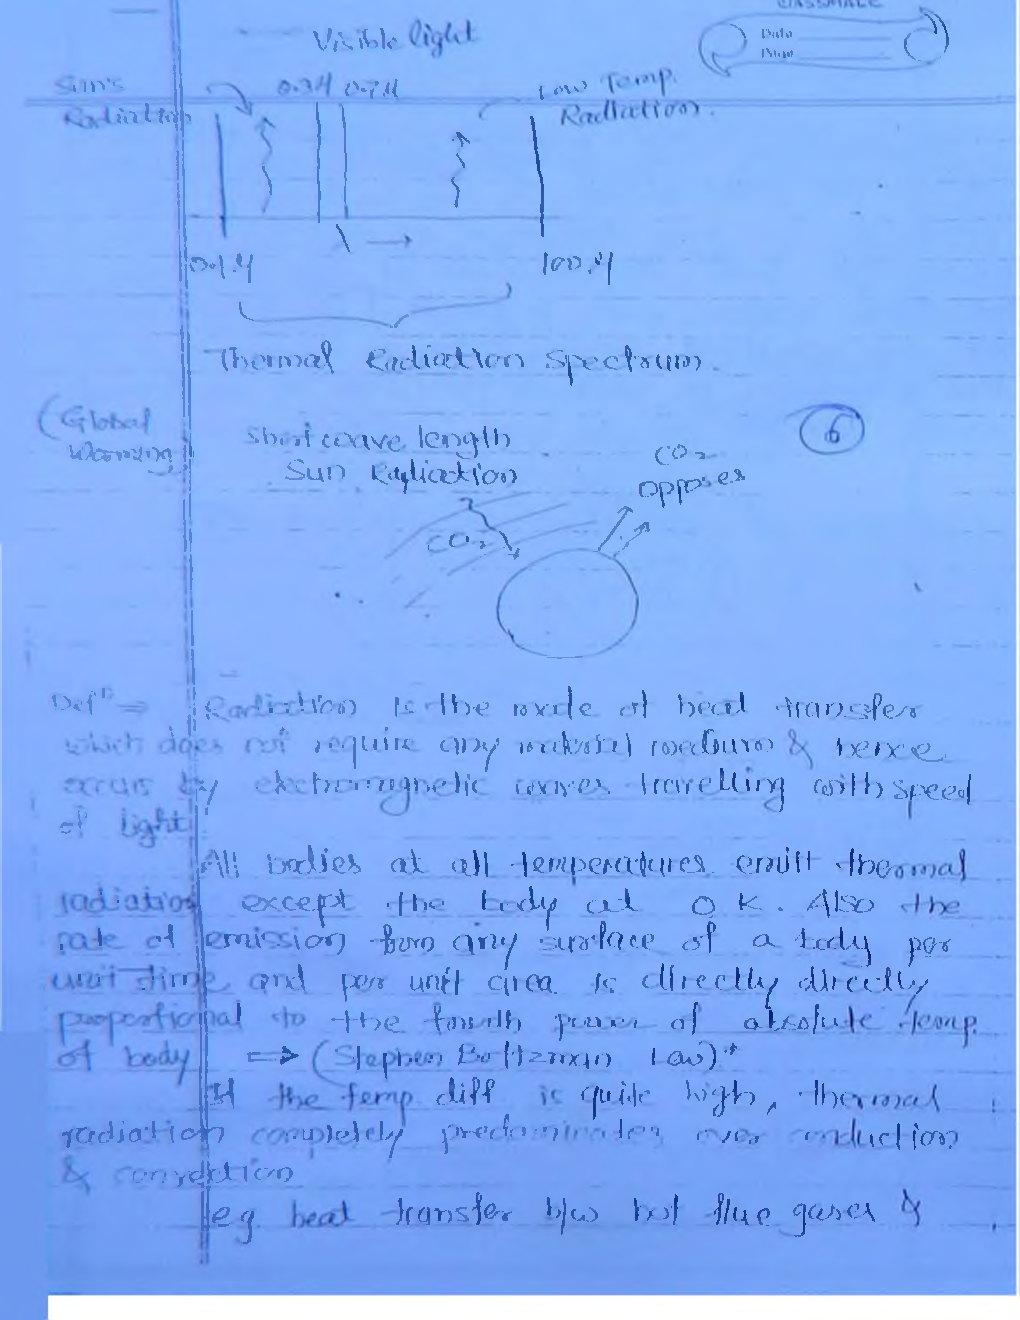 classmate
Date
Page
Visible light
Sun's
Radiation
0.3μ 0.7μ
Low Temp.
Radiation.
λ →
0.1μ
100μ
Thermal Radiation Spectrum.
(Global
Warming
Short wave length
Sun Radiation
6
CO2
opposes
CO2
Defⁿ ⇒ Radiation is the mode of heat transfer
which does not require any material medium & hence
occurs by electromagnetic waves travelling with speed
of light.
All bodies at all temperatures emitt thermal
radiation except the body at 0 K. Also the
rate of emission from any surface of a body per
unit time and per unit area is directly directly
proportional to the fourth power of absolute temp
of body ⇒ (Stephen Boltzman Law)*
If the temp diff is quite high, thermal
radiation completely predominates over conduction
& convection
e.g. heat transfer b/w hot flue gases &